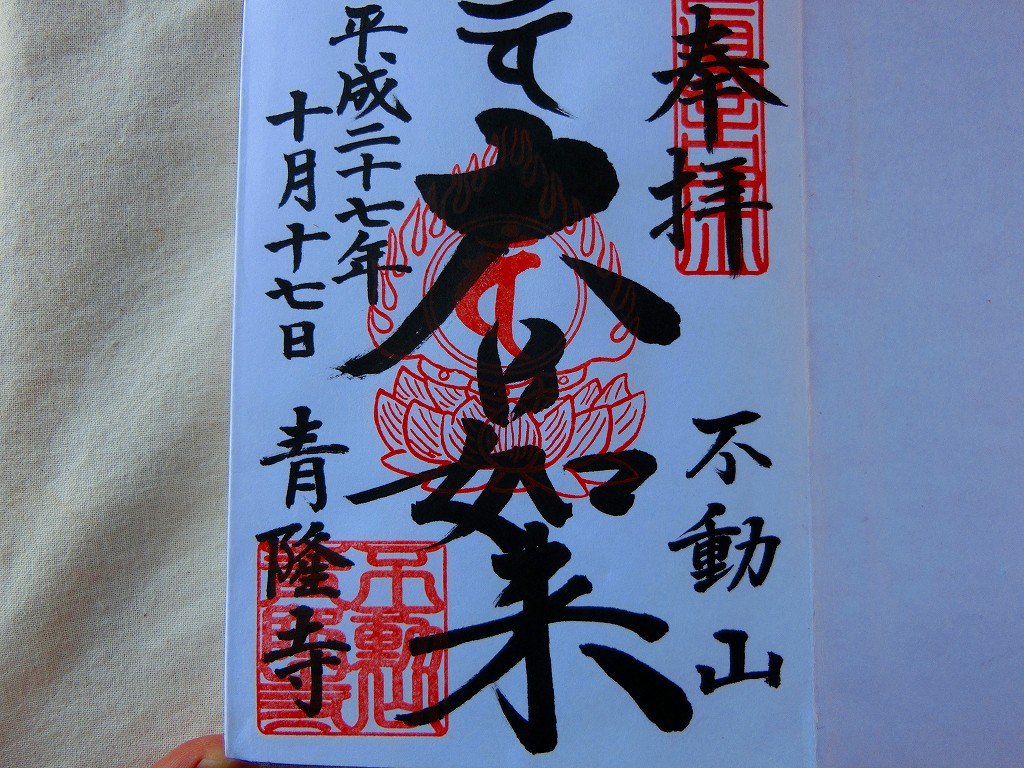 奉拝
不動山
大日如来
平成二十七年
十月十七日
青隆寺
不動山